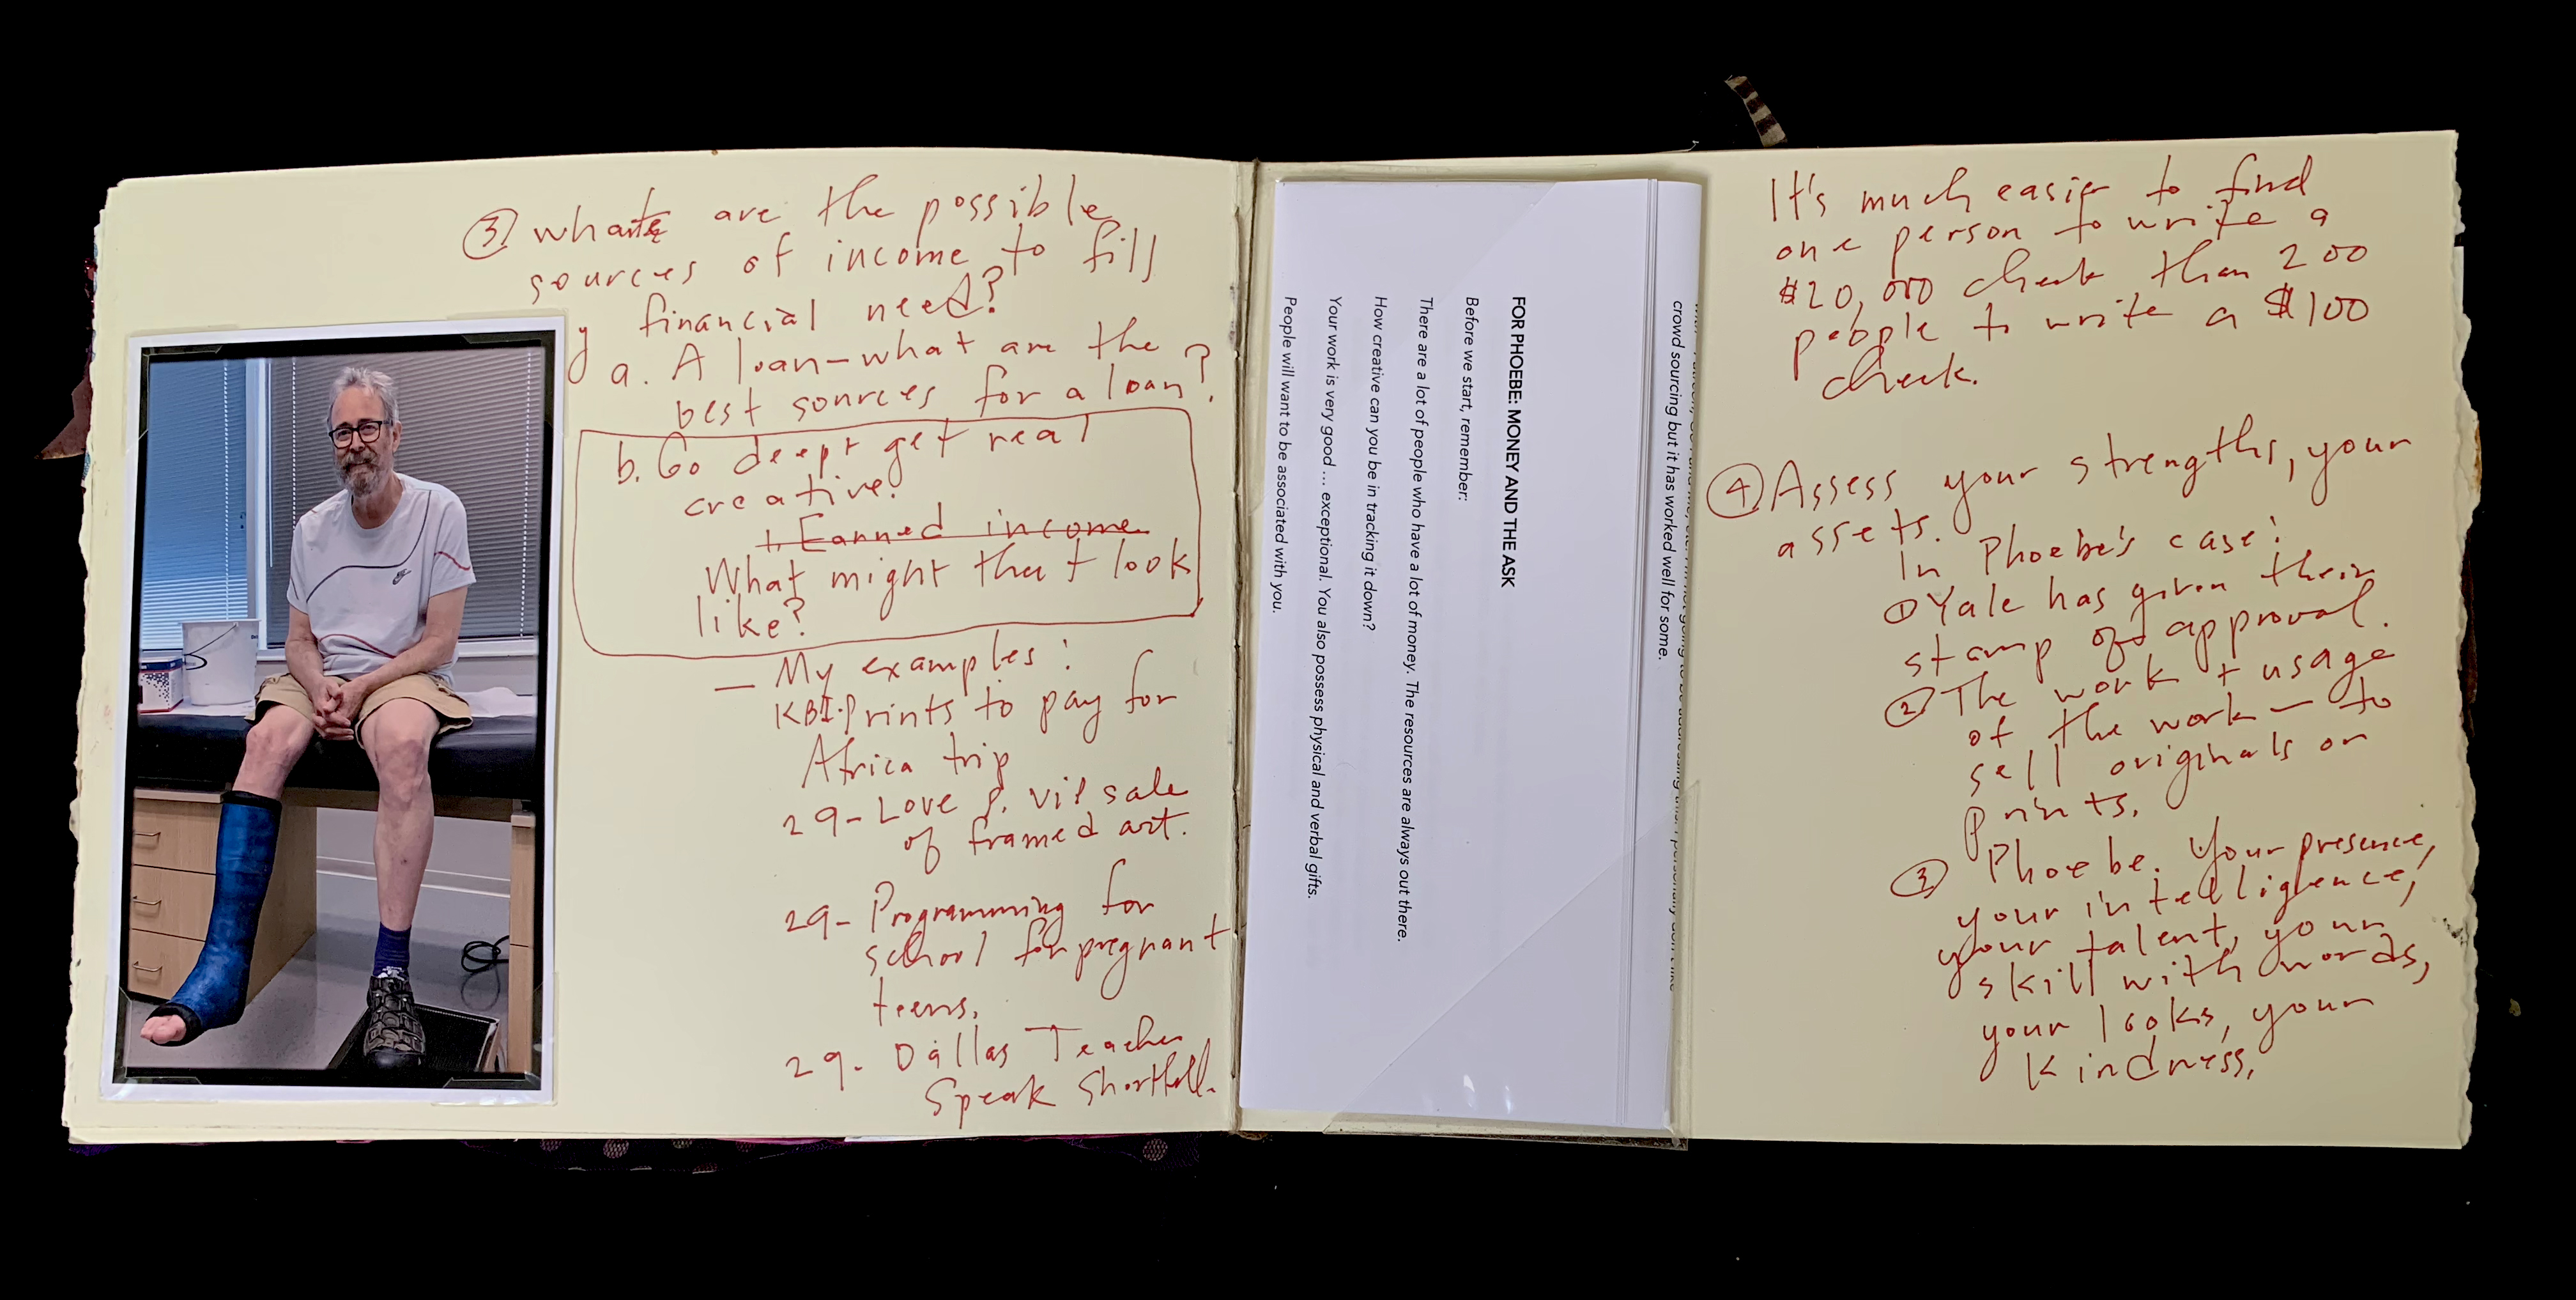 ③ what are the possible
sources of income to fill
financial need?
a. A loan—what are the
best sources for a loan?
b. Go deep + get real
creative!
1. Earned income
What might that look
like?
— My examples:
KBI Prints to pay for
Africa trip
29- Love P. vip sale
of framed art.
29- Programming for
school for pregnant
teens.
29- Dallas Teacher
Speak Shortfall.
FOR PHOEBE: MONEY AND THE ASK
Before we start, remember:
There are a lot of people who have a lot of money. The resources are always out there.
How creative can you be in tracking it down?
Your work is very good ... exceptional. You also possess physical and verbal gifts.
People will want to be associated with you.
crowd sourcing but it has worked well for some.
It's much easier to find
one person to write a
$20,000 check than 200
people to write a $100
check.
④ Assess your strengths, your
assets.
In Phoebe's case:
① Yale has given their
stamp of approval.
② The work + usage
of the work — to
sell originals or
prints.
③ Phoebe. Your presence,
your intelligence,
your talent, your
skill with words,
your looks, your
kindness.